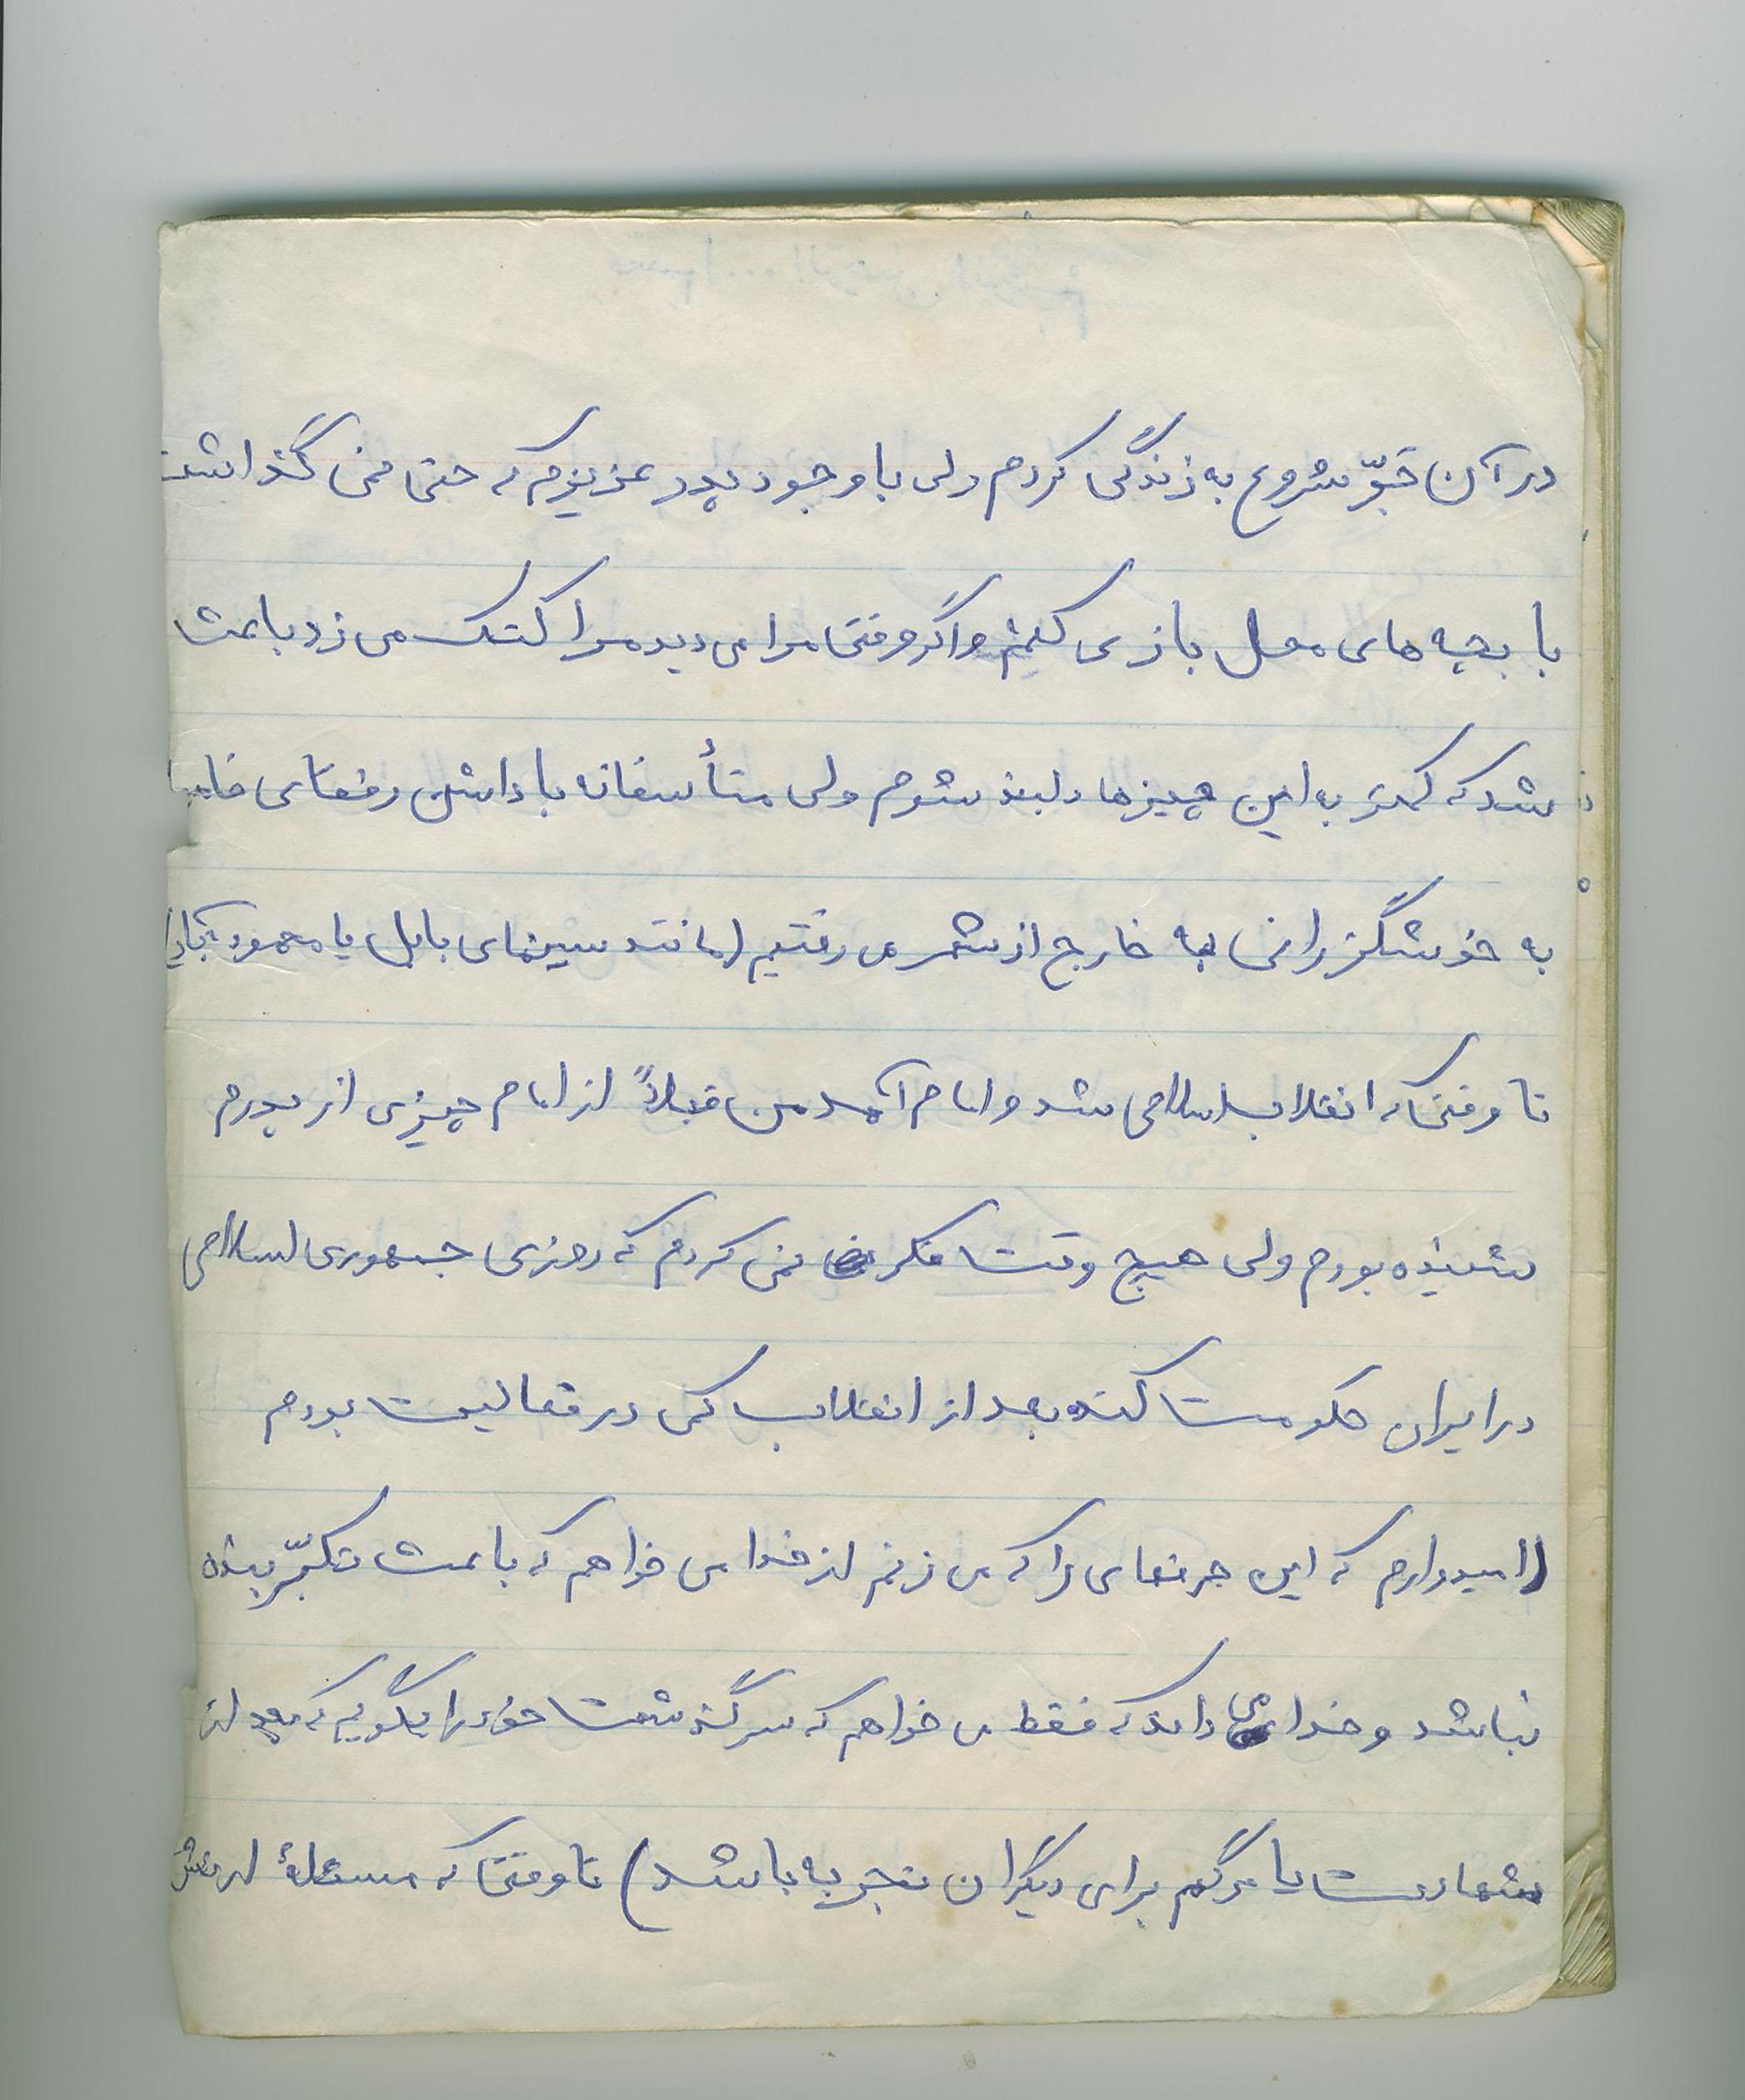 در آن جوّ شروع به زندگی کردم ولی با وجود پدر عزیزم که حتی نمی گذاشت
با بچه های محل بازی کنیم و اگر وقتی مرا می دید مرا کتک می زد باعث
شد که کمتر به این چیزها دلبند شوم ولی متأسفانه با داشتن رفقای
به خوشگزرانی به خارج از شهر می رفتیم (مانند سینمای بابل یا محمودآباد)
تا وقتی که انقلاب اسلامی شد و امام آمد من قبلاً از امام چیزی از پدرم
شنیده بودم ولی هیچ وقت فکر نمی کردم که روزی جمهوری اسلامی
در ایران حکومت کند بعد از انقلاب کمی در فعالیت بودم
(امیدوارم که این حرفهای را که می زنم از خدا می خواهم که باعث تکبّر بنده
نباشد و خدا می داند که فقط می خواهم که سرگذشت خود را بگویم که بعد از
شهادت یا مرگم برای دیگران تجربه باشد) تا وقتی که مسئلهٔ